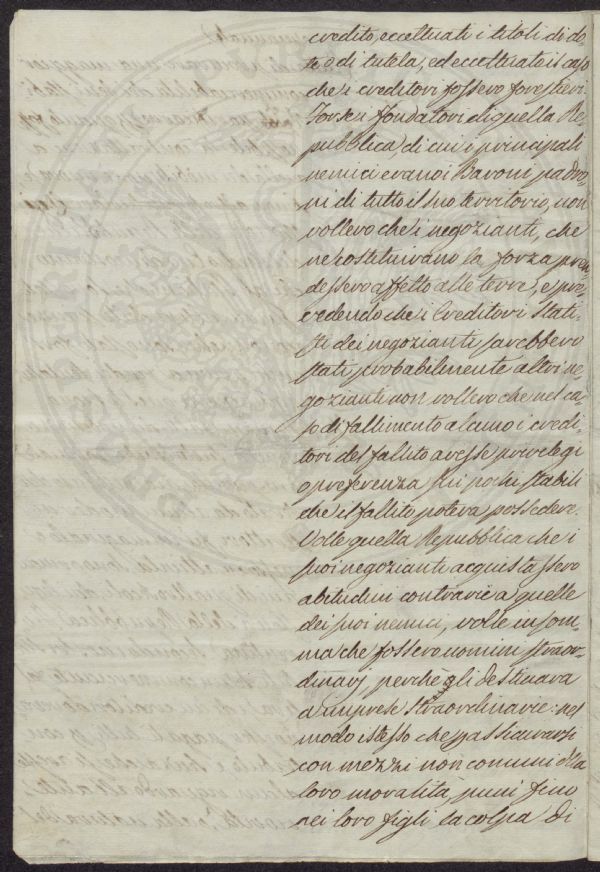 credito, eccettuati i titoli di do-
te, o di tutela, ed eccettuato il caso
che i creditori fossero forestieri.
Forse i fondatori di quella Re-
pubblica, di cui i principali
nemici erano i Baroni padro-
ni di tutto il suo territorio, non
vollero che i negozianti, che
ne costituivano la forza pren-
dessero affetto alle terre, e pre-
vedendo che i Creditori Stati-
sti dei negozianti sarebbero
stati probabilmente altri ne-
gozianti non vollero che nel ca-
so di fallimento alcuno i credi-
tori del fallito avesse privilegi
o preferenza sui pochi stabili
che il fallito poteva possedere.
Volle quella Repubblica che i
suoi negozianti acquistassero
abitudini contrarie a quelle
dei suoi nemici, volle in som-
ma che fossero uomini straor-
dinarj perchè gli destinava
a imprese straordinarie: nel
modo istesso che per assicurarsi
con mezzi non comuni della
loro moralità, punì fino
nei loro figli la colpa di